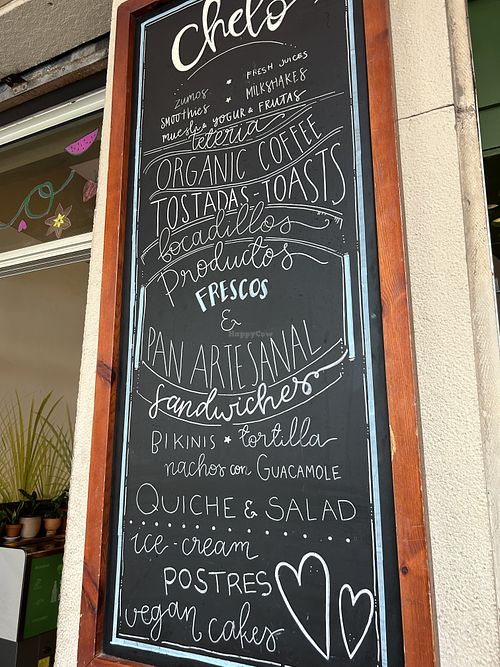 Chelo
zumos * FRESH JUICES
SMOOTHIES * MILKSHAKES
MUESLI & YOGUR & FRUTAS
tetería
ORGANIC COFFEE
TOSTADAS-TOASTS
bocadillos
Productos
FRESCOS
&
PAN ARTESANAL
Sandwiches
BIKINIS * tortilla
nachos con GUACAMOLE
QUICHE & SALAD
ice-cream
POSTRES
vegan cakes
HappyCow